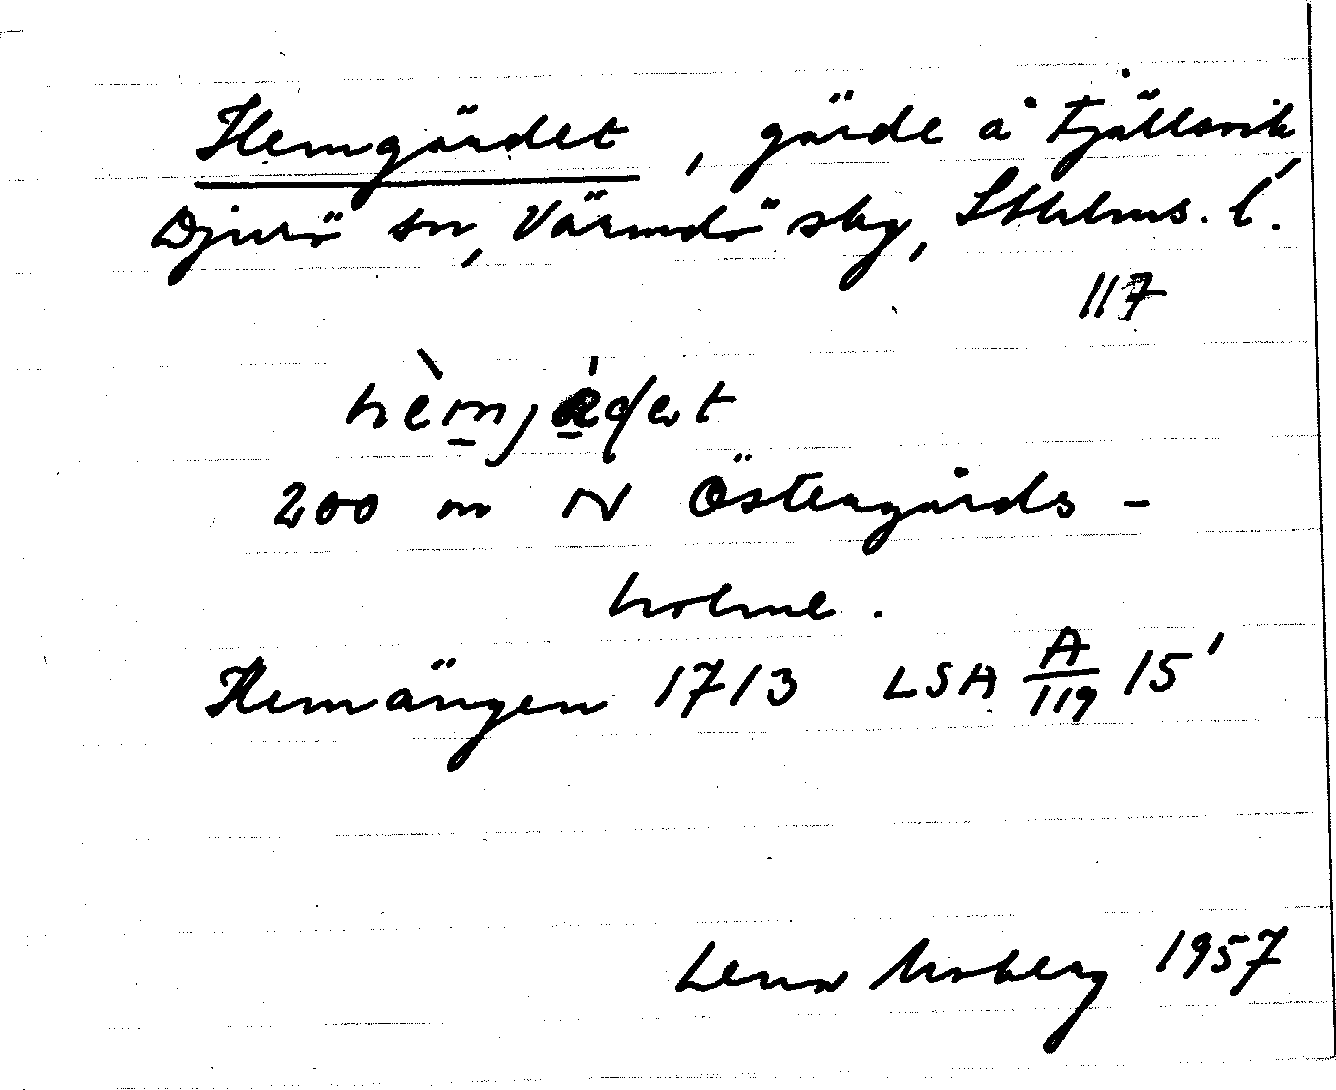 Hemgärdet, gärde å Fjällsvik,
Djurö sn, Värmdö skg, Sthlms. l.
117
200 m N Östergårds-
holme.
Hemängen 1713 LSA A/119 15'
Lena Moberg 1957